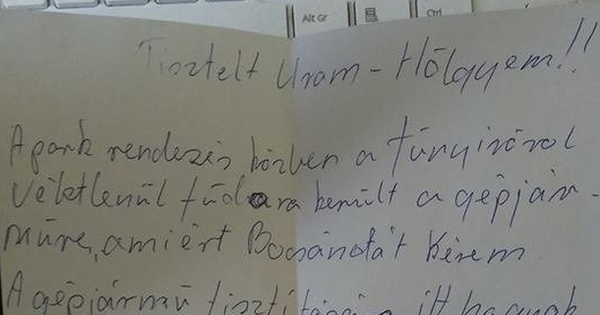 Alt Gr
Ctrl
Tisztelt Uram - Hölgyem!!
A park rendezés közben a fűnyíróról
véletlenül fűdara kerűlt a gépjár-
műre, amiért Bocsánatát kérem
A gépjármű tisztítására itt hagyok